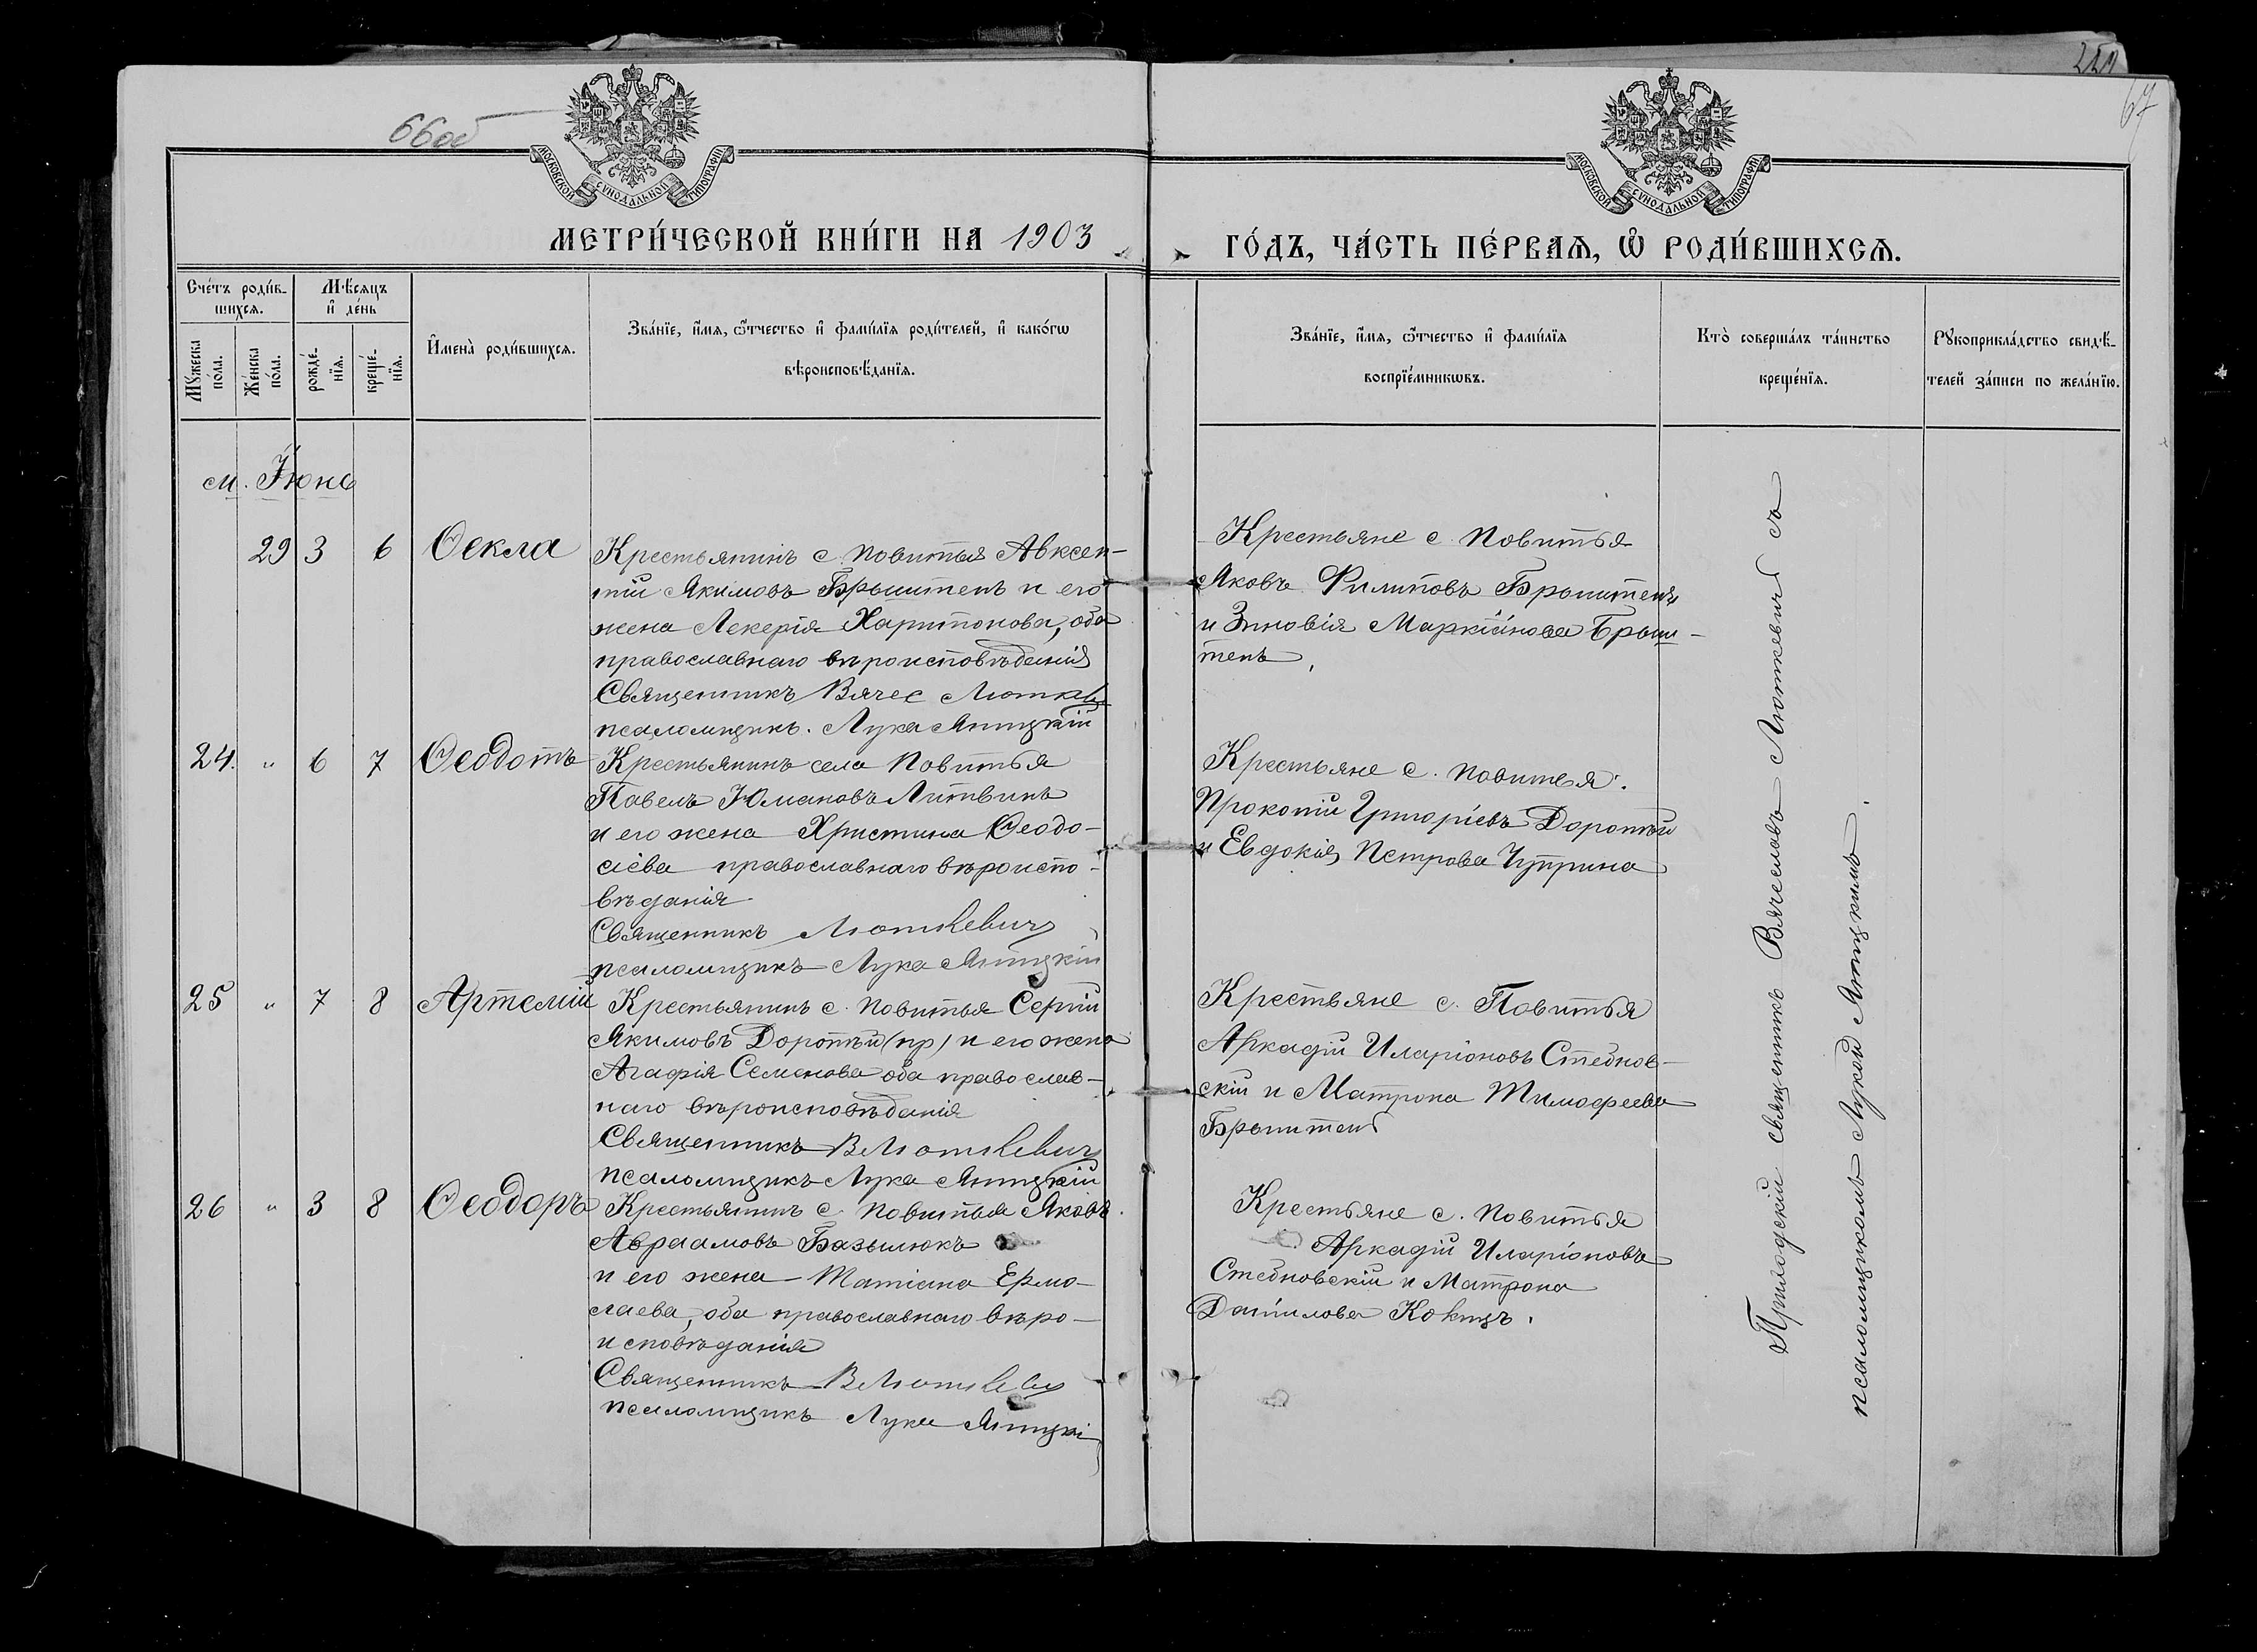 66об
67
МОСКОВСКОЙ СѴНОДАЛЬНОЙ ТИПОГРАФІИ
МОСКОВСКОЙ СѴНОДАЛЬНОЙ ТИПОГРАФІИ
МЕТРИ́ЧЕСКОЙ КНИ́ГИ НА 1903
ГО́ДЪ, ЧА́СТЬ ПЕ́РВАѦ, Ѽ РОДИ́ВШИХСѦ.
Сче́тъ роди́в-
шихсѧ.
Мѣ́сѧцъ
и҆ де́нь
Мꙋ́жеска
по́ла.
Же́нска
по́ла.
рожде́-
нїѧ.
креще́-
нїѧ.
И҆мена̀ роди́вшихсѧ.
Зва́нїе, и҆́мѧ, ѻ҆́тчество и҆ фами́лїѧ роди́телей, и҆ како́гѡ
вѣроисповѣ́данїѧ.
Зва́нїе, и҆́мѧ, ѻ҆́тчество и҆ фами́лїѧ
воспрїе́мникѡвъ.
Кто̀ соверша́лъ та́инство
креще́нїѧ.
Рꙋкоприкла́дство свидѣ́-
телей за́писи по жела́нїю.
м. Іюнь
29 3 6 Ѳекла
Крестьянинъ с. Повитья Авксен-
тій Якимовъ Брышпенъ и его
жена Лекерія Харитонова, оба
православнаго вѣроисповѣданія
Священникъ Вячес Люткев
псаломщикъ. Лука Ялицкій
Крестьяне с. Повитья
Яковъ Филиповъ Брышпенъ
и Зиновія Маркіанова Брыш-
пенъ
24. " 6 7 Ѳеодотъ
Крестьянинъ села Повитья
Павелъ Литвинъ
и его жена Христина Ѳеодо-
сіева православнаго вѣроиспо-
вѣданія.
Священникъ Люткевичъ
псаломщикъ Лука Ялицкій
Крестьяне с. Повитья.
Прокопій Григоріевъ Доротѣй
и Евдокія Петрова Чуприна
25 " 7 8 Артемій
Крестьянинъ с. Повитья Сергій
Якимовъ Доротѣй (пр) и его жена
Агафія Семенова оба православ-
наго вѣроисповѣданія
Священникъ В Люткевичъ
псаломщикъ Лука Ялицкій
Крестьяне с. Повитья
Аркадій Иларіоновъ Стебнов-
скій и Матрона Тимофеева
Брышпенъ
26 " 3 8 Ѳеодоръ
Крестьянинъ с. Повитья Яковъ
Авраамовъ Базылюкъ
и его жена Татіана Ермо-
лаева, оба православнаго вѣро-
исповѣданія
Священникъ В Люткевич
псаломщикъ Лука Ялицкі
Крестьяне с. Повитья
Аркадій Иларіоновъ
Стебновскій и Матрона
Данилова
Приходскій священникъ Вячеславъ Люткевичъ съ
псаломщикомъ Лукой Ялицкимъ.